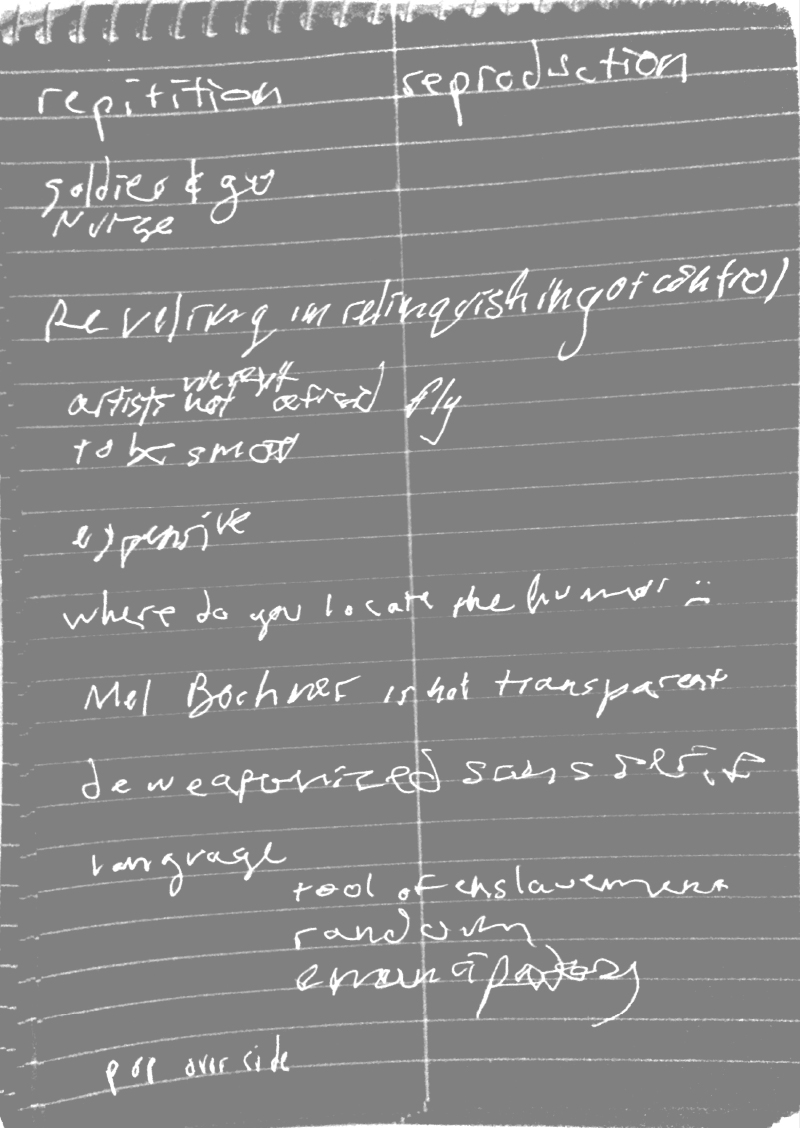 repitition reproduction
soldier & gun
Nurse
Reveling in relinquishing of control
weren't
artists not afraid fly
to be smart
expensive
where do you locate the humor
Mel Bochner is not transparent
deweaponized sans serif
language
tool of enslavement
random
emancipatory
pop over side